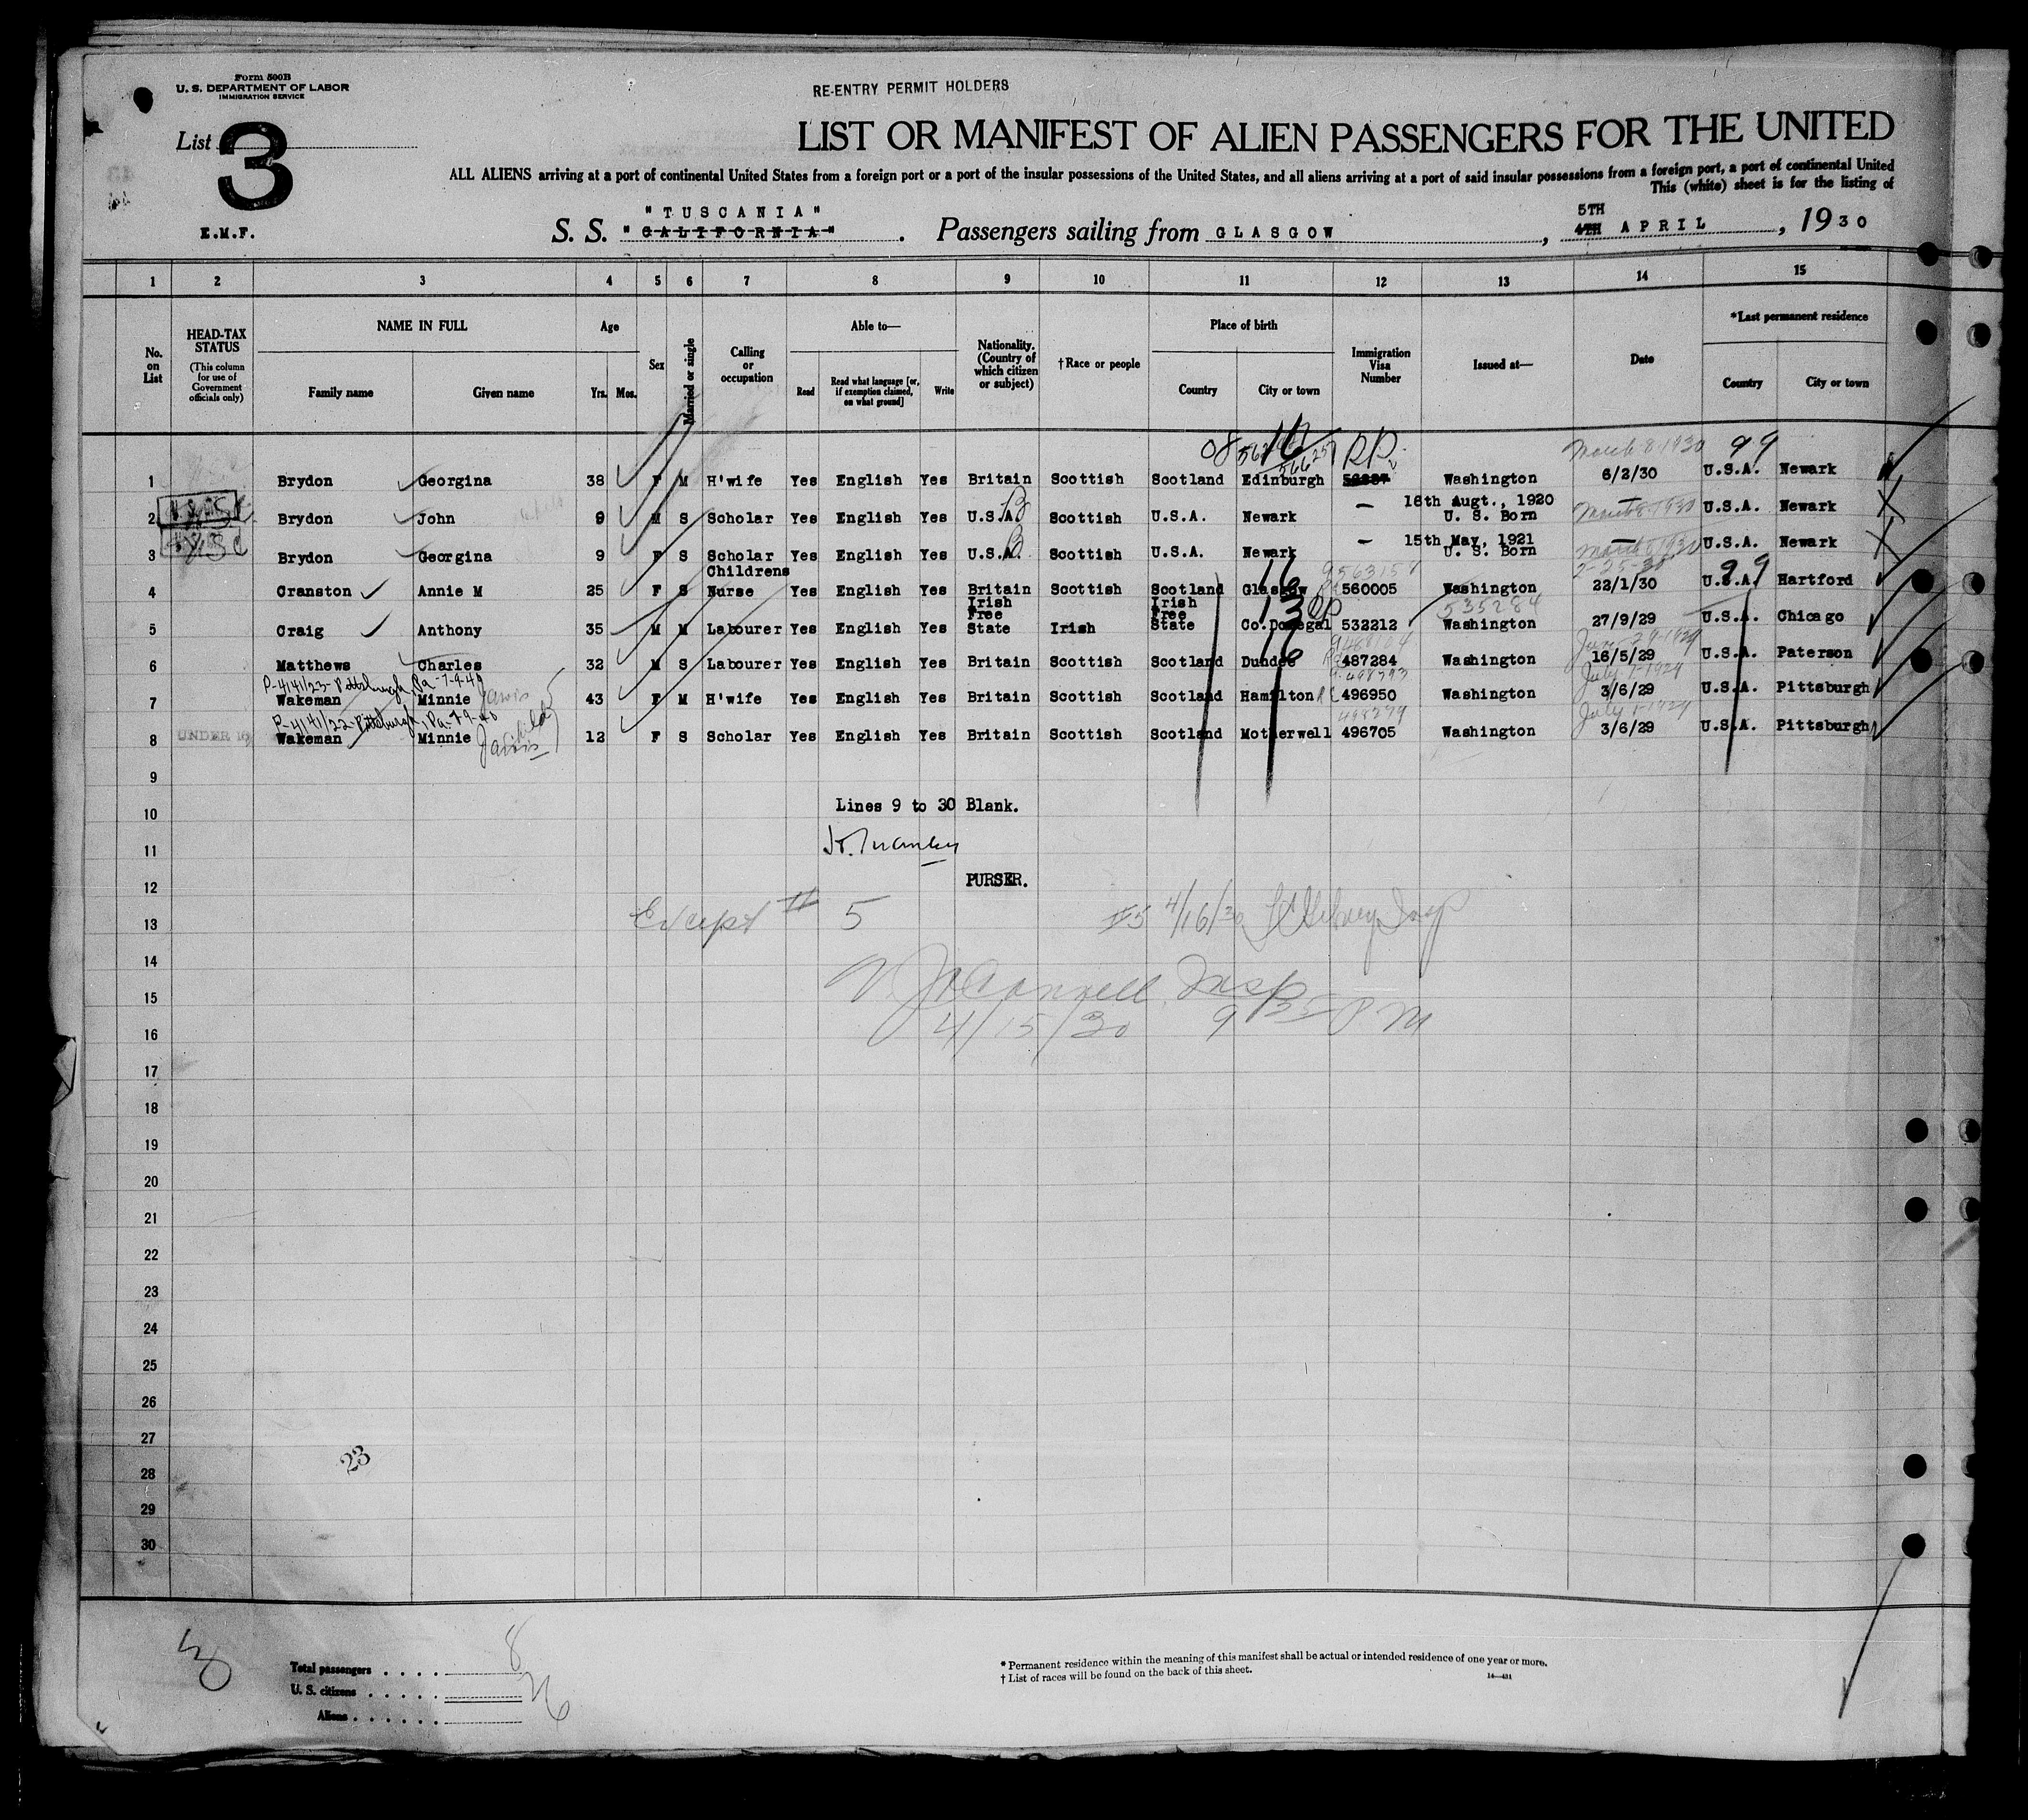 Form 500B
U. S. DEPARTMENT OF LABOR
IMMIGRATION SERVICE
RE-ENTRY PERMIT HOLDERS
List 3
LIST OR MANIFEST OF ALIEN PASSENGERS FOR THE UNITED
ALL ALIENS arriving at a port of continental United States from a foreign port or a port of the insular possessions of the United States, and all aliens arriving at a port of said insular possessions from a foreign port, a port of continental United
This (white) sheet is for the listing of
E.M.F.
"TUSCANIA"
S. S. "CALIFORNIA". Passengers sailing from GLASGOW, 5TH 4TH APRIL, 1930
1 2 3 4 5 6 7 8 9 10 11 12 13 14 15
No. on List
HEAD-TAX STATUS
(This column for use of Government officials only)
NAME IN FULL
Family name Given name
Age
Yrs. Mos.
Sex
Married or single
Calling or occupation
Able to—
Read Read what language [or, if exemption claimed, on what ground] Write
Nationality. (Country of which citizen or subject)
†Race or people
Place of birth
Country City or town
Immigration Visa Number
Issued at—
Date
*Last permanent residence
Country City or town
March 8 1930 99
1 Brydon Georgina 38 F M H'wife Yes English Yes Britain Scottish Scotland Edinburgh Washington 6/2/30 U.S.A. Newark
16th Augt., 1920
2 Brydon John 9 M S Scholar Yes English Yes U.S.A. Scottish U.S.A. Newark — U. S. Born U.S.A. Newark
15th May, 1921
3 Brydon Georgina 9 F S Scholar Yes English Yes U.S.A. Scottish U.S.A. Newark — U. S. Born U.S.A. Newark
2-25-30 99
4 Cranston Annie M 25 F S Childrens Nurse Yes English Yes Britain Scottish Scotland Glasgow 560005 Washington 22/1/30 U.S.A. Hartford
535284
5 Craig Anthony 35 M M Labourer Yes English Yes Irish Free State Irish Irish Free State Co.Donegal 532212 Washington 27/9/29 U.S.A. Chicago
6 Matthews Charles 32 M S Labourer Yes English Yes Britain Scottish Scotland Dundee 487284 Washington 16/5/29 U.S.A. Paterson
P-4141/23-Pittsburgh, Pa-7-9-40
7 Wakeman Minnie 43 F M H'wife Yes English Yes Britain Scottish Scotland Hamilton 496950 Washington 3/6/29 U.S.A. Pittsburgh
P-4141/22-Pittsburgh, Pa-7-9-40
8 UNDER 16 Wakeman Minnie 12 F S Scholar Yes English Yes Britain Scottish Scotland Motherwell 496705 Washington 3/6/29 U.S.A. Pittsburgh
9
Lines 9 to 30 Blank.
10
11
12 PURSER.
13 Except # 5 #5 4/16/30
14
15 McConnell Insp
16 4/15/30 9 35 PM
17
18
19
20
21
22
23
24
25
26
27
23
28
29
30
Total passengers . . . . 8
U. S. citizens . . . . . 2
Aliens . . . . . . 6
* Permanent residence within the meaning of this manifest shall be actual or intended residence of one year or more.
† List of races will be found on the back of this sheet.
14—481